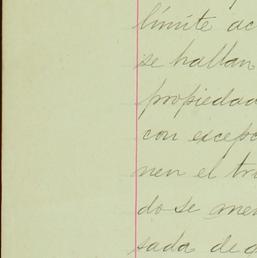 límite ac
se hallan
propiedad
con excepc
nen el tr
do se men
sada de a